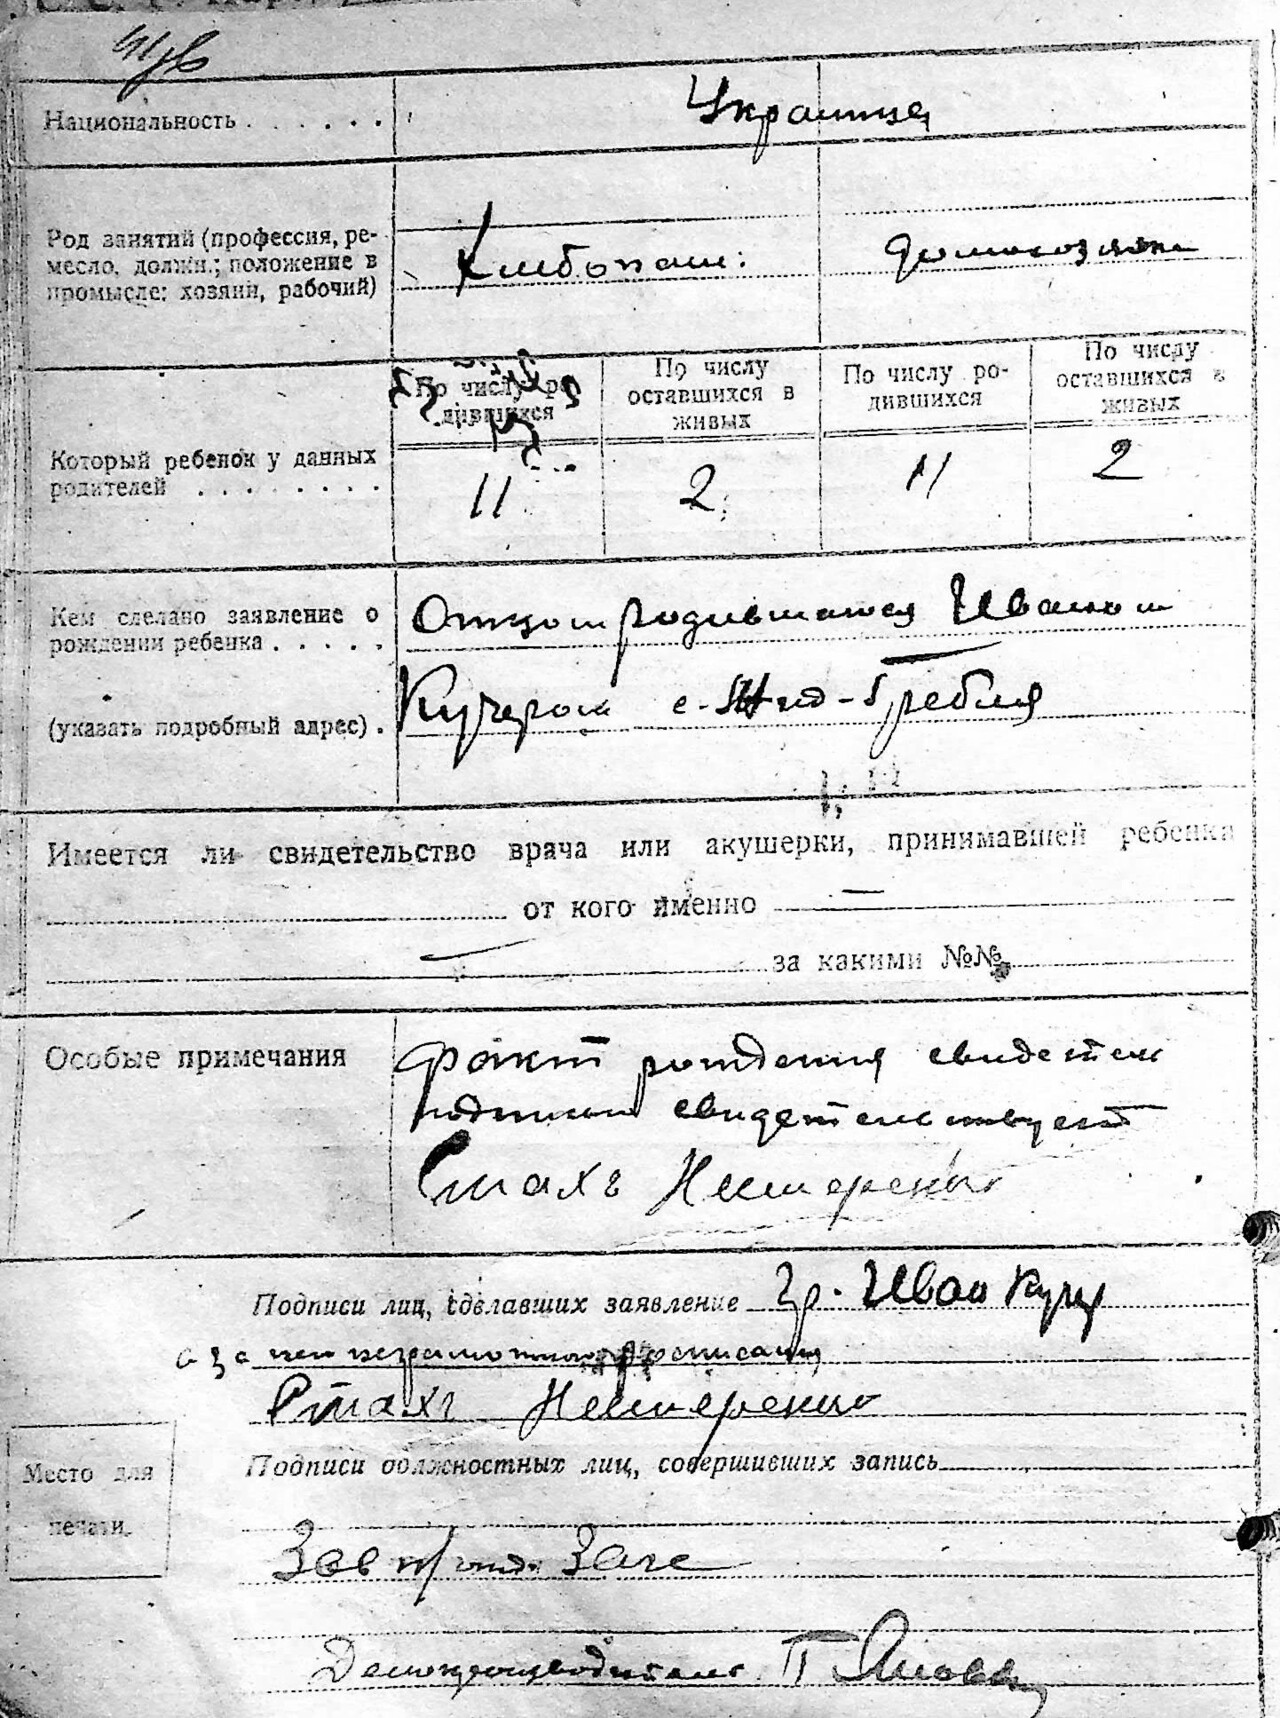 Национальность . . . . . . Украинцы
Род занятий (профессия, ре-
месло, должн.; положение в
промысле: хозяин, рабочий)
Хлебопаш: домохозяйка
По числу ро-
дившихся
По числу
оставшихся в
живых
По числу ро-
дившихся
По числу
оставшихся в
живых
Который ребенок у данных
родителей . . . . . . . .
11 2 11 2
Кем сделано заявление о
рождении ребенка . . . . .
(указать подробный адрес) .
Отцом родившагося Иваном
Кучером с-
Гребля
Имеется ли свидетельство врача или акушерки, принимавшей ребенка
— от кого именно —
за какими №№
Особые примечания
факт рождения свидетель
подписью свидетельствует
Стахъ Нестеренко
Подписи лиц, сделавших заявление Гр. Иван Куче
а за него неграмотного расписался
Стахъ Нестеренко
Место для
печати.
Подписи должностных лиц, совершивших запись
Зав п/отд. Загс
Делопроизводитель П